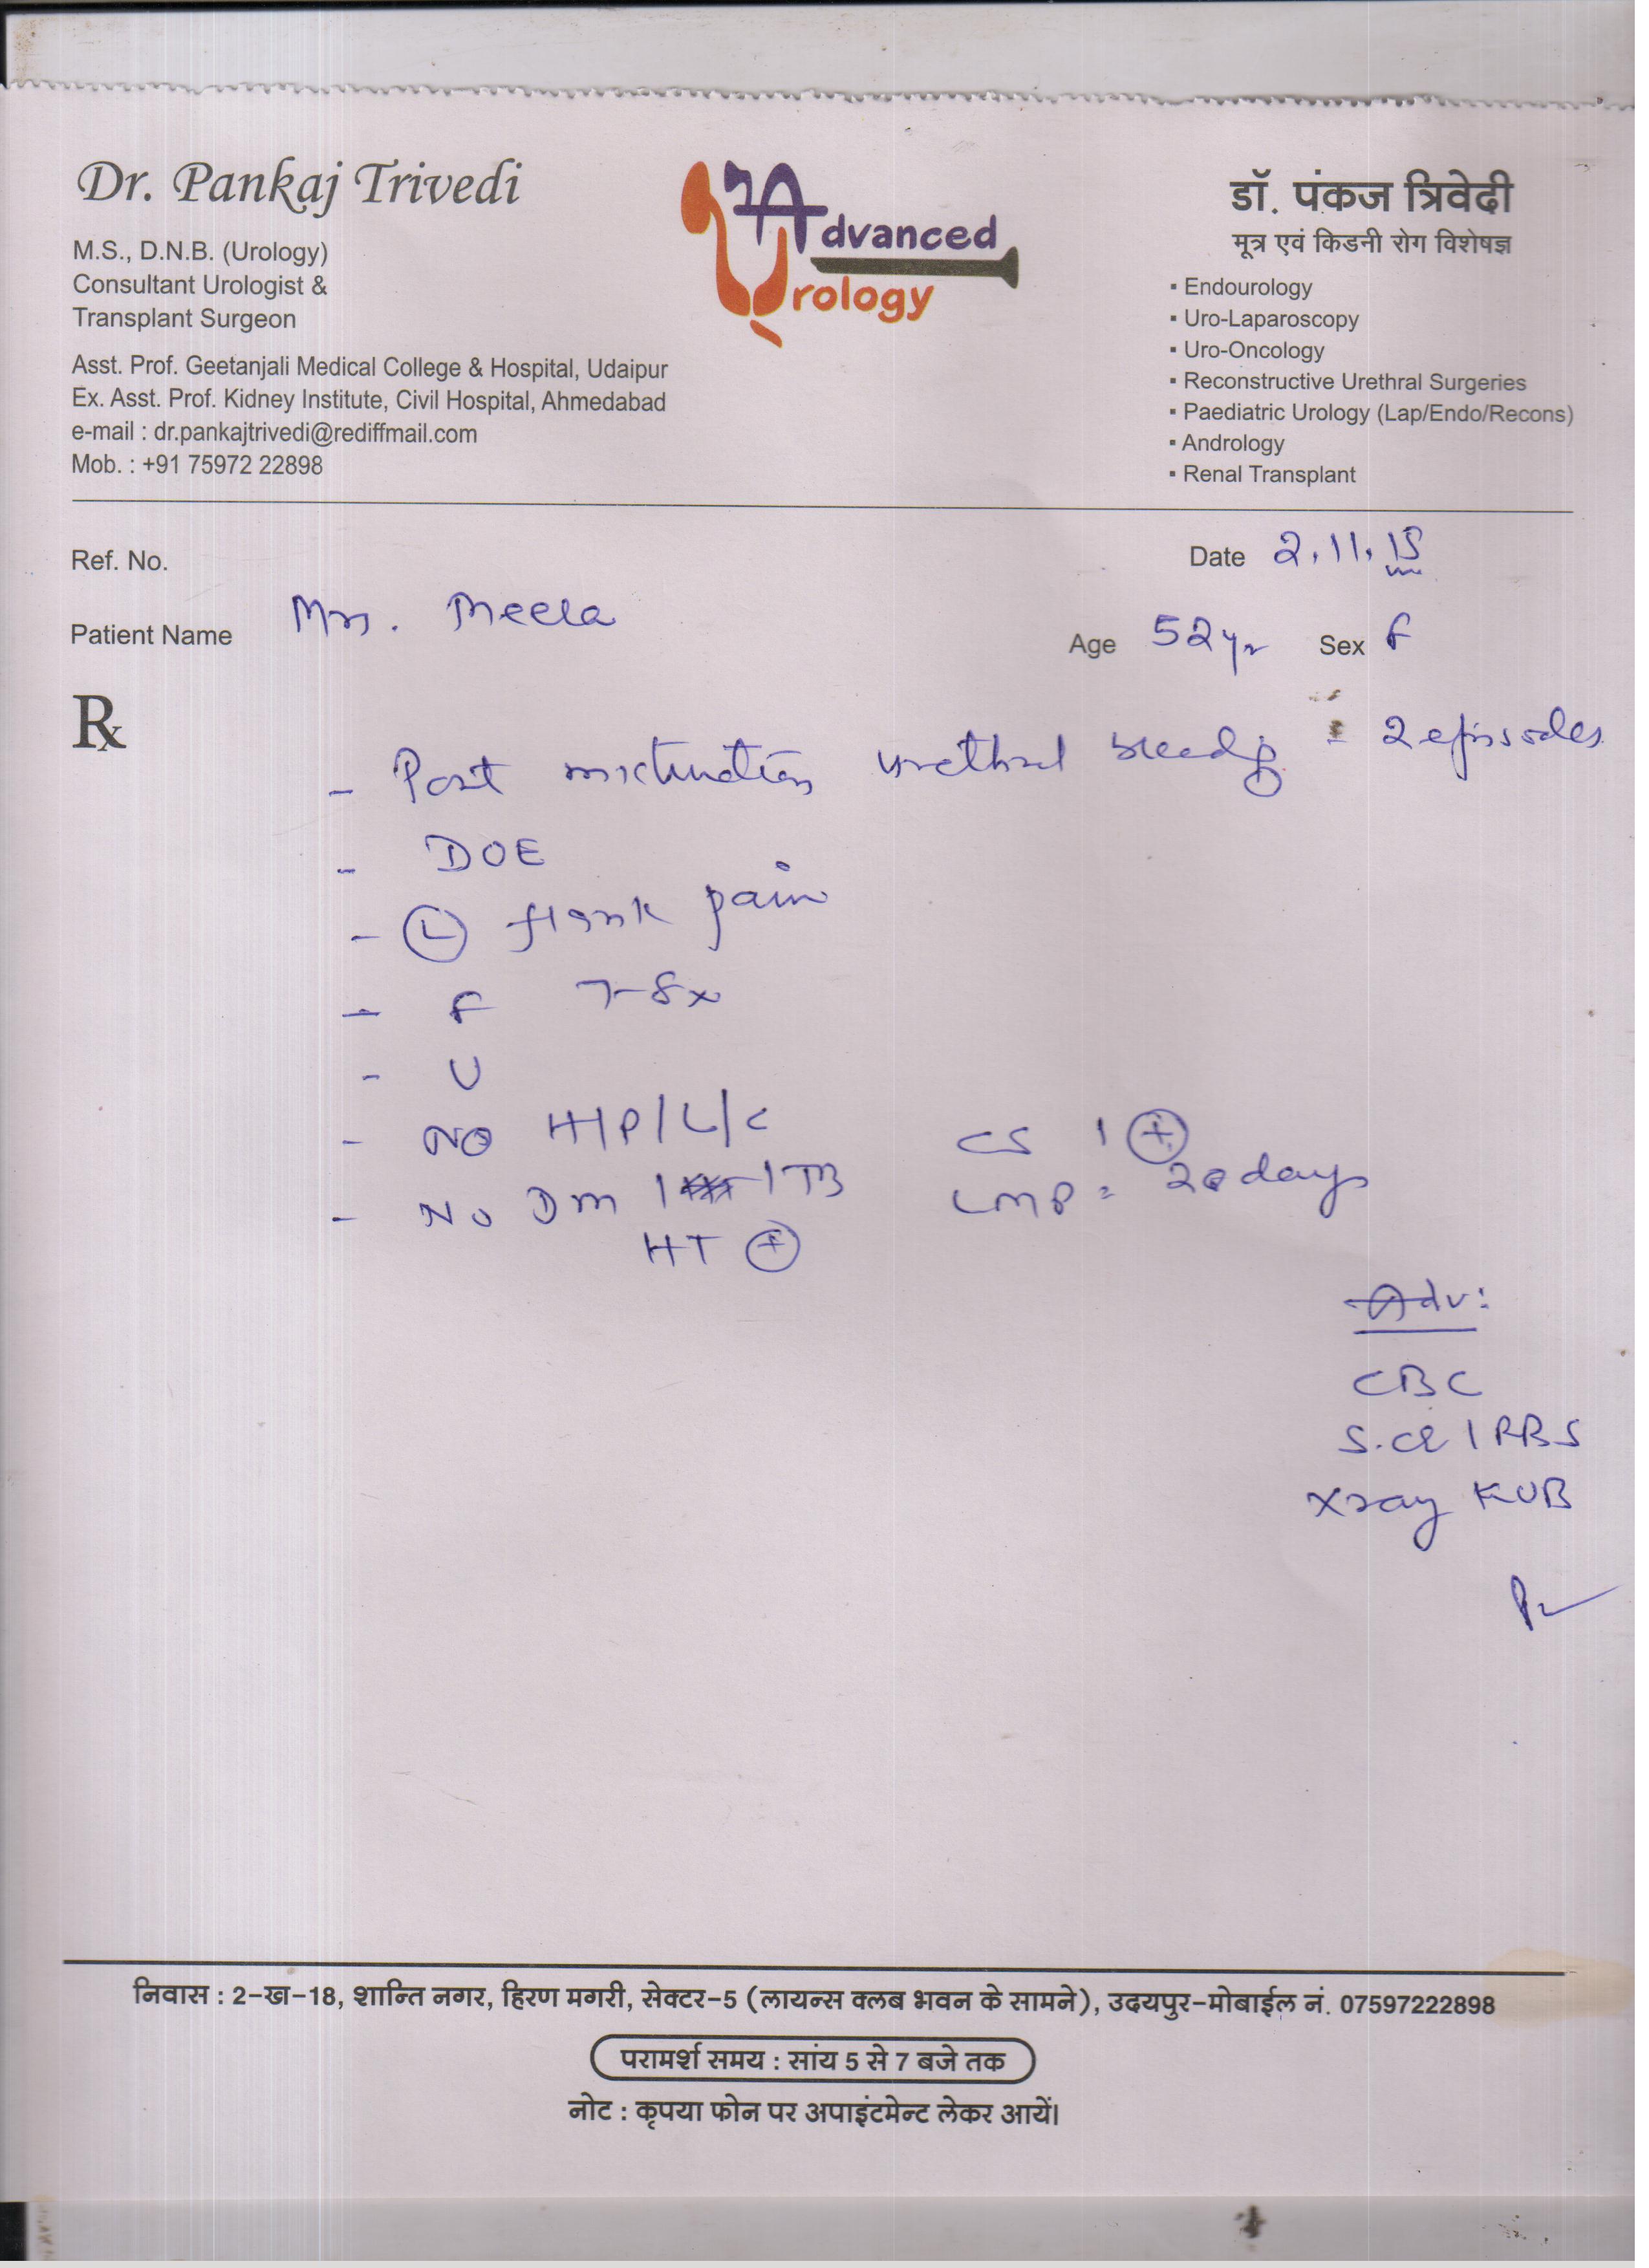 Dr. Pankaj Trivedi
M.S., D.N.B. (Urology)
Consultant Urologist &
Transplant Surgeon
Asst. Prof. Geetanjali Medical College & Hospital, Udaipur
Ex. Asst. Prof. Kidney Institute, Civil Hospital, Ahmedabad
e-mail : dr.pankajtrivedi@rediffmail.com
Mob. : +91 75972 22898
Advanced
Urology
डॉ. पंकज त्रिवेदी
मूत्र एवं किडनी रोग विशेषज्ञ
▪ Endourology
▪ Uro-Laparoscopy
▪ Uro-Oncology
▪ Reconstructive Urethral Surgeries
▪ Paediatric Urology (Lap/Endo/Recons)
▪ Andrology
▪ Renal Transplant
Ref. No.
Date 2.11.15
Patient Name Mrs. Meera
Age 52yr Sex F
Rx
- Post micturition urethral bleedg - 2 episodes
- DOE
- (L) flank pain
- F 7-8x
- U
- NO H/P/L/C CS 1 (+)
- No DM / / TB LMP = 20 days
HT (+)
Adv:
CBC
S.Cr / RBS
Xray KUB
निवास : 2-ख-18, शान्ति नगर, हिरण मगरी, सेक्टर-5 (लायन्स क्लब भवन के सामने), उदयपुर-मोबाईल नं. 07597222898
परामर्श समय : सांय 5 से 7 बजे तक
नोट : कृपया फोन पर अपाइंटमेन्ट लेकर आयें।